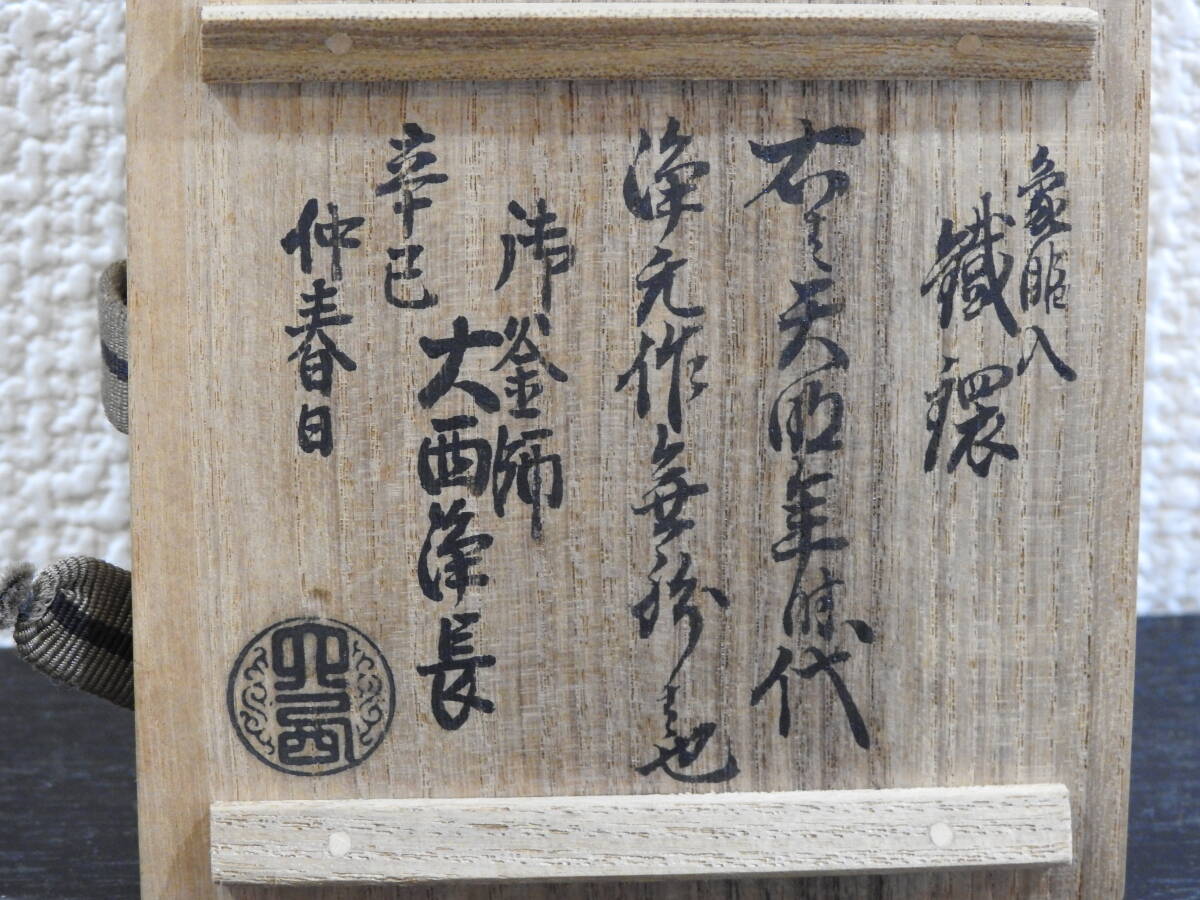 象眼入
鐵鐶
右ハ天明年時代
浄元作無紛者也
御釜師
大西浄長
辛巳
仲春日
大西